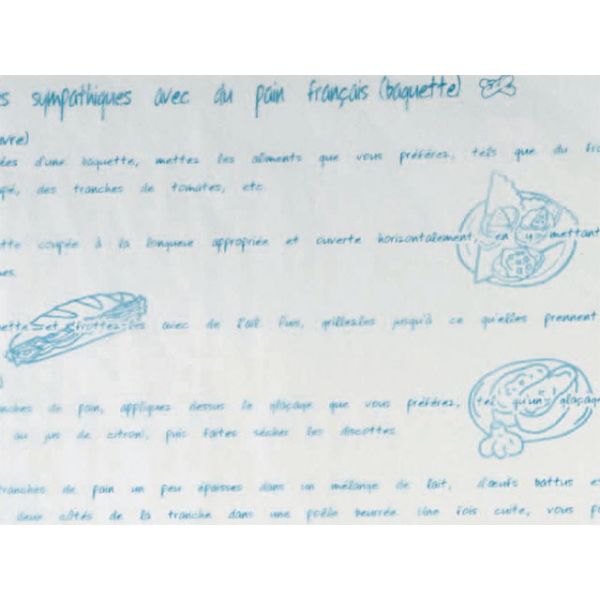 es sympathiques avec du pain français (baquette)
uvre)
ées d'une baquette, mettez les aliments que vous préférez, tels que du fro
upé, des tranches de tomates, etc.
tte coupée à la longueur appropriée et ouverte horizontalement, en y mettant
ues.
ette et frottez-les avec de l'ail. Puis, grillez-les jusqu'à ce qu'elles prennent
)
nches de pain, appliquez dessus le glaçage que vous préférez, tel qu'un glaçage
au jus de citron, puis faites sécher les biscottes.
tranches de pain un peu épaisses dans un mélange de lait, d'œufs battus et
deux côtés de la tranche dans une poêle beurrée. Une fois cuite, vous po